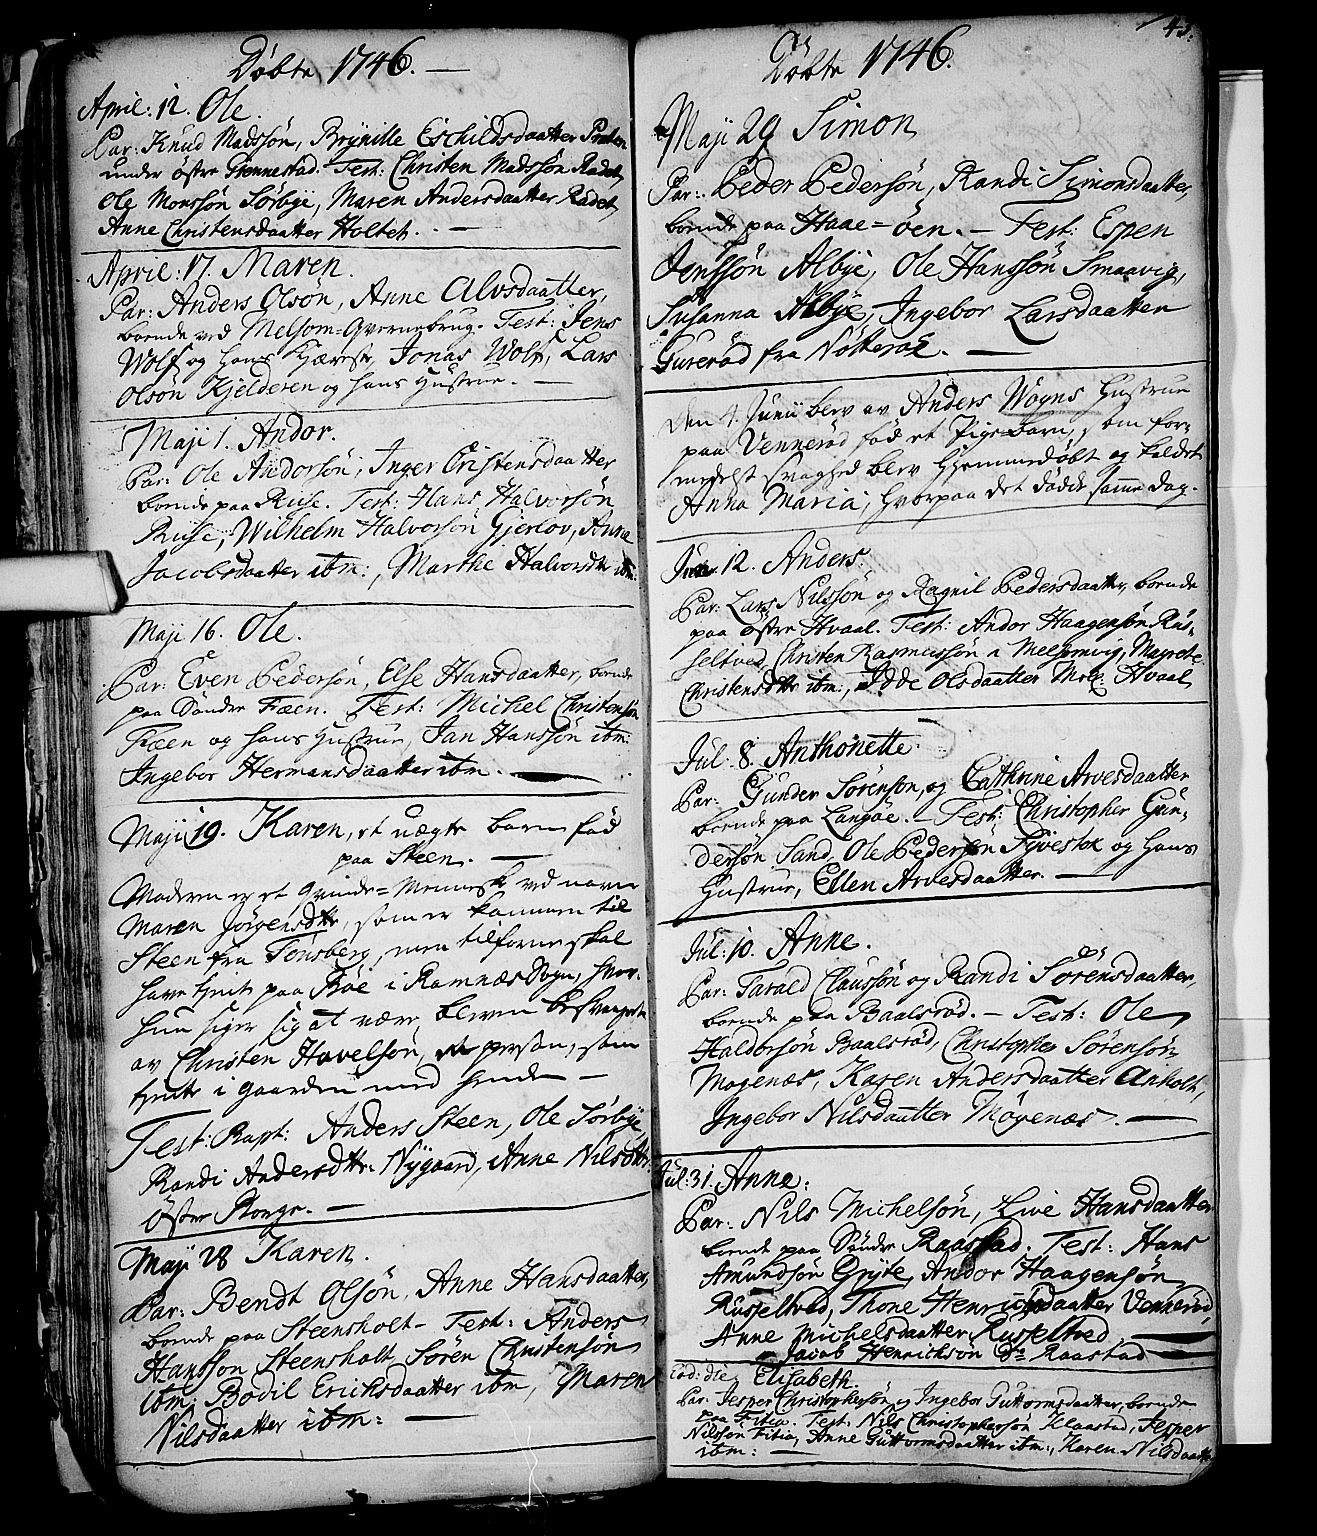 Døbte 1746. —
April: 12. Ole.
Par: Knud Madssøn, Brynille Eschildsdaatter Pladsen
under østre Giennestad. Test: Christen Madssøn Rødet,
Ole Monssøn Sørbye, Maren Andersdaatter Rødet,
Anne Christensdaatter Holtet. —
April: 17. Maren.
Par: Anders Olsøn, Anne Alvsdaatter,
boende ved Melsom-Qvernebrug. Test: Jens
Wolf og hans Kjæreste, Jonas Wolf, Lars
Olsøn Kjelderen og hans Hustrue. —
Maji 1. Andor.
Par: Ole Andorsøn, Inger Cristensdaatter
boende paa Ruse. Test: Hans Halvorsøn
Ruse, Wilhelm Halvorsøn Gjerlov, Anne
Jacobsdaatter ibm:, Marthe Halvorsdtr ibm:
Maji 16. Ole.
Par: Even Pedersøn, Else Hansdaatter, boende
paa Sønder Fæen. Test: Michel Christensøn
Fæen og hans Hustrue, Jan Hanssøn ibm:
Ingebor Hermansdaatter ibm. —
Maji 19. Karen, et uægte barn fød
paa Steen. —
Moderen er et Qvinde=Menneske ved navn
Maren Jørgensdtr, som er kommen til
Steen fra Tønsberg, men tilforne skal
have tjent paa Bøe i Ramnæs Sogn, hvor
hun siger sig at være bleven besvangret
av Christen Havelsøn, en person, som
tjente i gaarden med hende —
Test: Rapt: Anders Steen, Ole Sørbye,
Randi Andersdtr: Nygaard, Anne Nilsdtr:
Øster Borge. —
Maji 28 Karen.
Par: Bendt Olsøn, Anne Hansdaatter,
boende paa Steensholt — Test: Anders
Hanssøn Steensholt, Søren Christensøn
ibm, Bodil Ericksdaatter ibm, Maren
Nilsdaatter ibm: —
43.
Døbte 1746.
Maji 29 Simon
Par: Peder Pedersøn, Randi Simonsdaatter,
boende paa Haae=øen. — Test: Espen
Jenssøn Albye, Ole Hanssøn Smaavig,
Susanna Albye, Ingebor Larsdaatter
Gurerød fra Nøtterøe. —
Den 4. Junii blev av Anders Wogns Hustrue
paa Vennerød fød et Pigebarn, som for-
medelst svaghed blev Hjemmedøbt og kaldet
Anna Maria, hvorpaa det døde samme dag.
Jun: 12. Anders.
Par: Lars Nilssøn og Ragnil Pedersdaatter, boende
paa østre Hvaal. Test: Andor Haagensøn Rus-
seltved, Christen Rasmussøn i Melsomvig, Magrete
Christensdtr ibm:, Idde Olsdaatter Mell: Hvaal
Jul: 8. Anthonette.
Par: Gunder Sørensøn, og Cathrine Arvesdaatter
boende paa Langøe. — Test: Christopher Gun-
dersøn Sand, Ole Pedersøn Tyvestok og Hans
Hustrue, Ellen Arvesdaatter. —
Jul: 10. Anne.
Par: Tarald Claussøn og Randi Sørensdaatter,
boende paa Baalsrød. — Test: Ole
Haldorsøn Baalsrød, Christopher Sørensøn
Mogenæs, Karen Andersdaatter Anholt,
Ingebor Nilsdaatter Møgenæs. —
Jul: 31. Anne:
Par: Nils Michelsøn, Live Hansdaatter
boende paa Søndre Raastad. Test: Hans
Amundsøn Gryte, Andor Haagensøn
Russeltved, Thone Henrichsdaatter Vennerød,
Anne Michelsdaatter Russeltved, —
Jacob Henrichsøn Raastad —
Eod: die, Elisabeth.
Par: Jesper Christophersøn og Ingebor Guttormsdaatter, boende
paa Fitia. Test: Nils Christophersøn Klaastad, Jesper
Nilssøn Fitia, Anne Guttormsdaatter ibm:, Karen Nilsdaatter
ibm: —